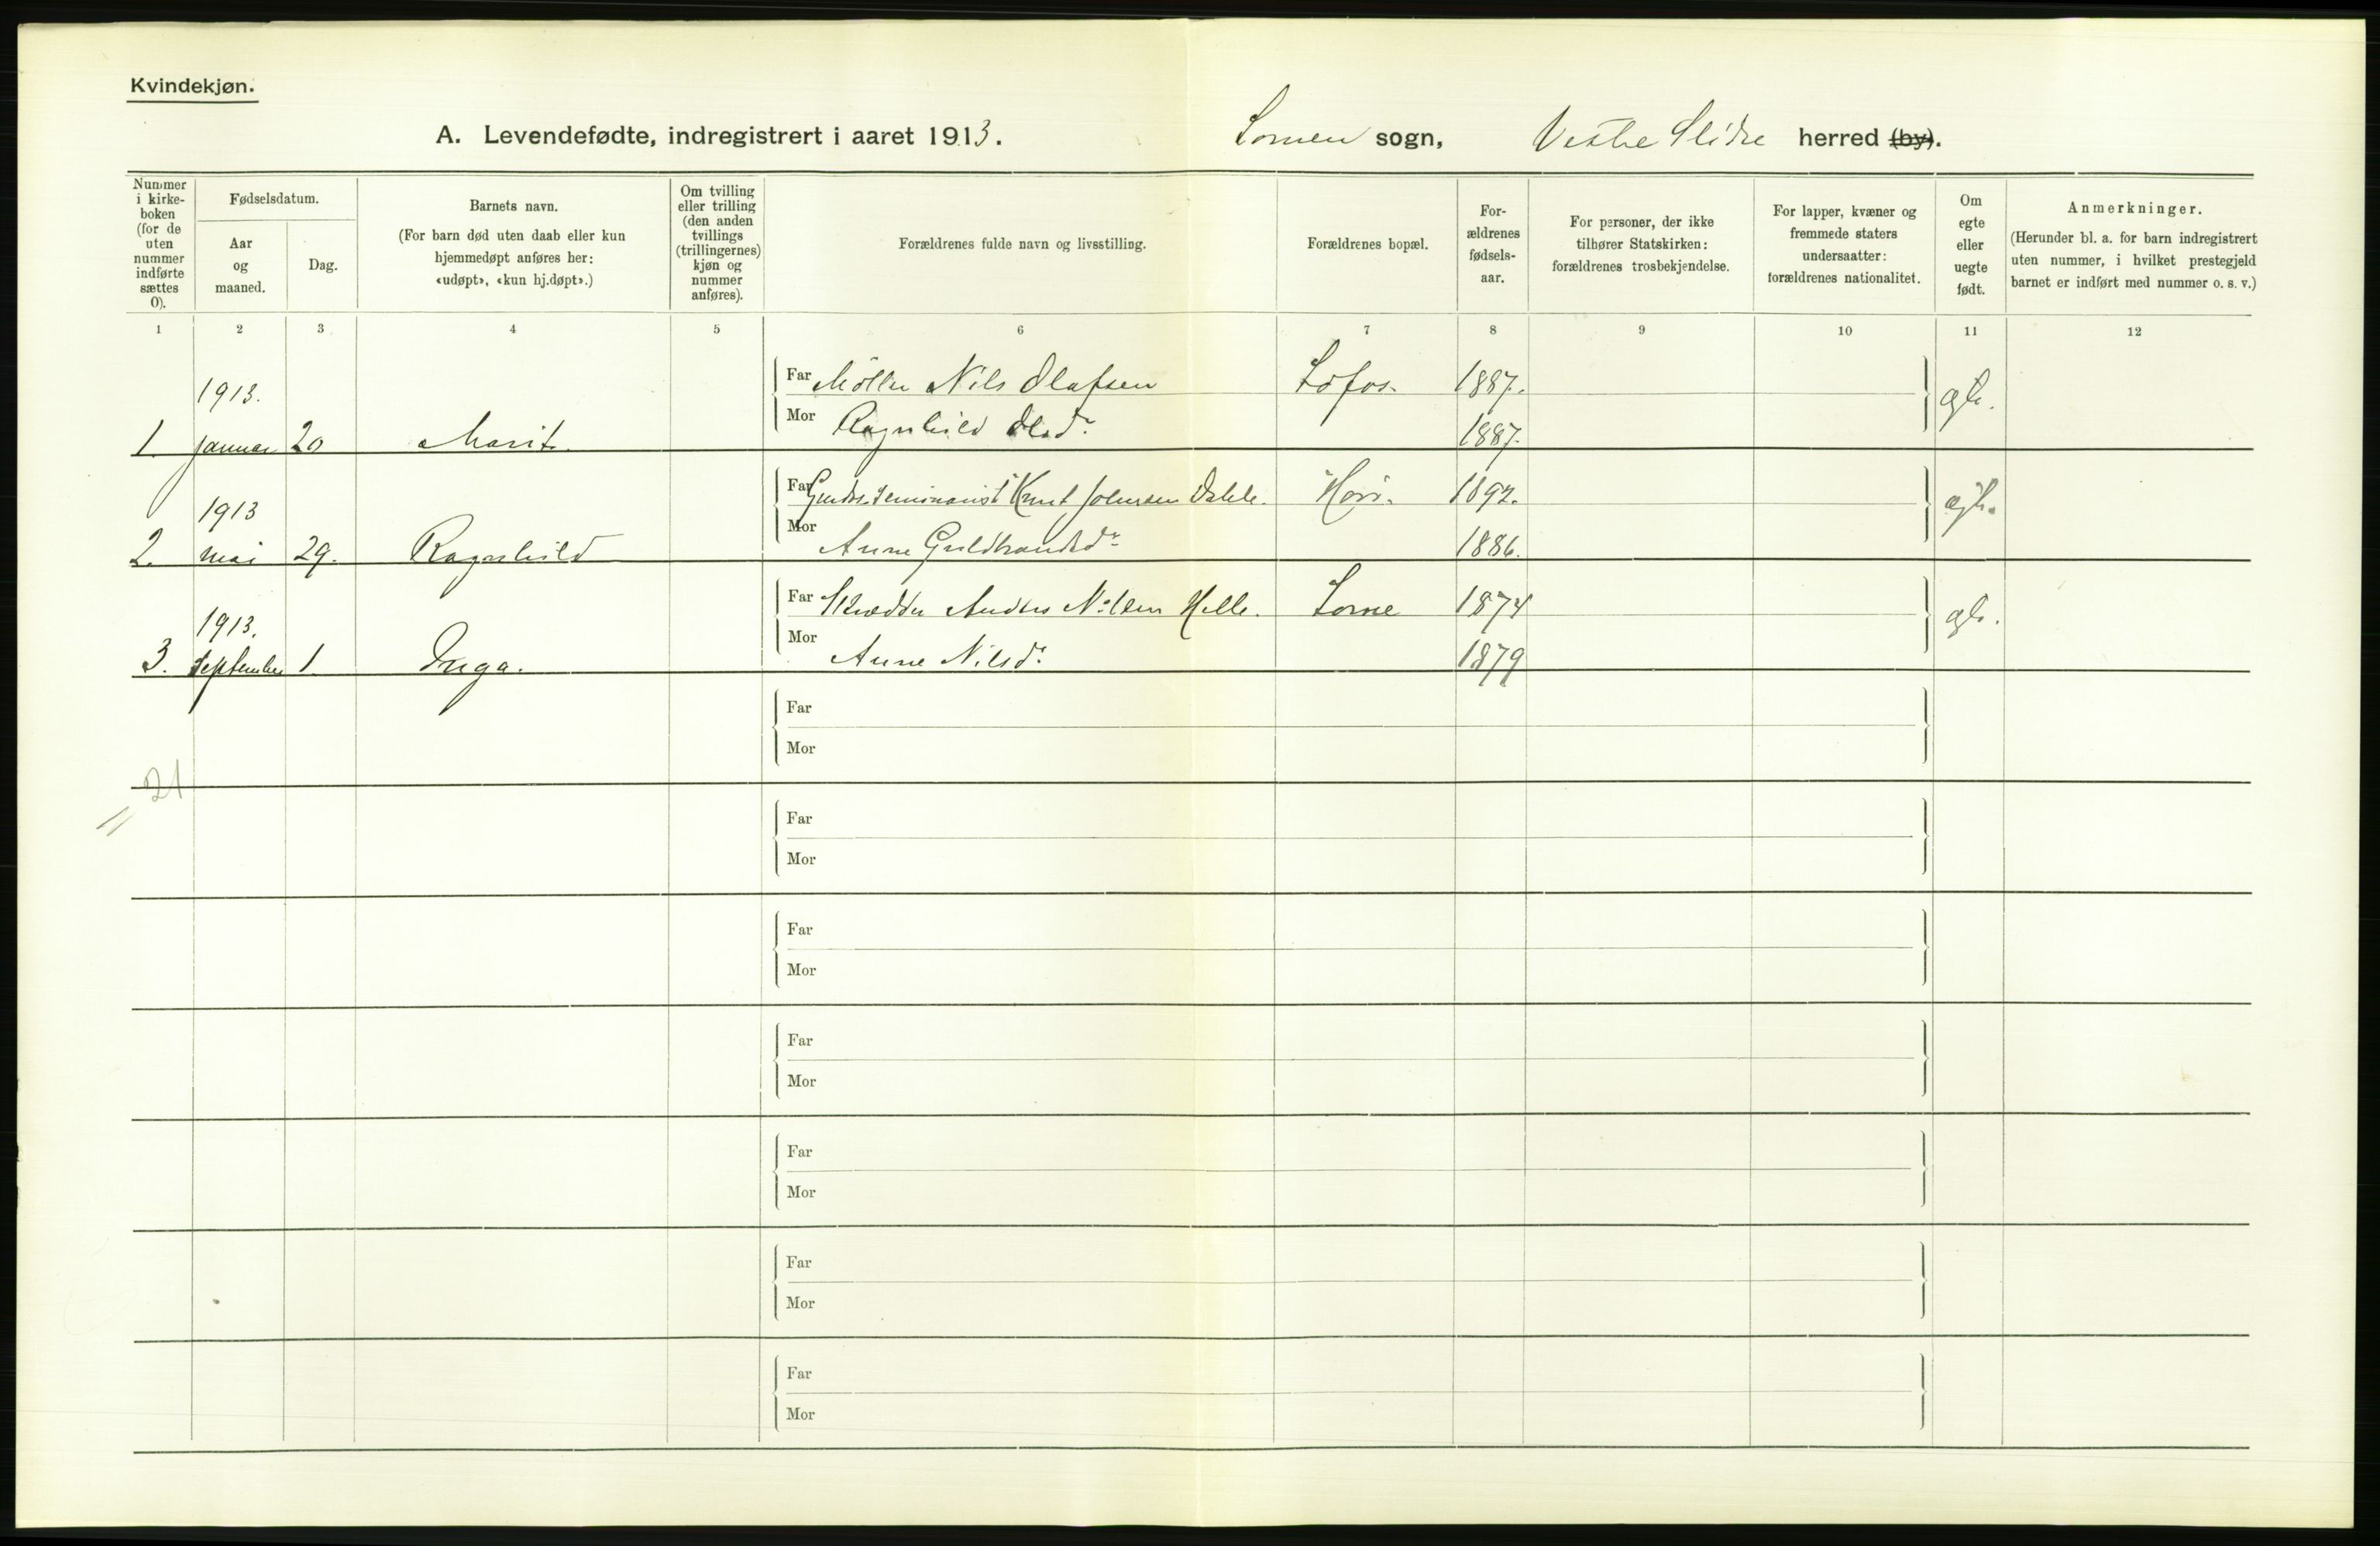 Kvindekjøn.
A. Levendefødte, indregistrert i aaret 1913. Lomen sogn, Vestre Slidre herred (by).
Nummer i kirke-boken (for de uten nummer indførte sættes 0).
Fødselsdatum.
Aar og maaned.
Dag.
Barnets navn.
(For barn død uten daab eller kun hjemmedøpt anføres her: «udøpt», «kun hj.døpt».)
Om tvilling eller trilling (den anden tvillings (trillingernes) kjøn og nummer anføres).
Forældrenes fulde navn og livsstilling.
Forældrenes bopæl.
For-ældrenes fødsels-aar.
For personer, der ikke tilhører Statskirken: forældrenes trosbekjendelse.
For lapper, kvæner og fremmede staters undersaatter: forældrenes nationalitet.
Om egte eller uegte født.
Anmerkninger.
(Herunder bl. a. for barn indregistrert uten nummer, i hvilket prestegjeld barnet er indført med nummer o. s. v.)
1 2 3 4 5 6 7 8 9 10 11 12
1913. Far Møller Nils Olafsen Lofos. 1887. egte.
1. januar 20 Marit. Mor Ragnhild Olsdr. 1887.
1913 Far Gudbr. seminarist Knut Johnsen Dahle. 1892. egte.
2. mai 29. Ragnhild Mor Anne Guldbrandsdr. 1886.
1913. Far Skrædder Anders Nilsen Helle. Lome 1874 egte.
3. September 1. Inga. Mor Anne Nilsdr. 1879
Far
Mor
21
Far
Mor
Far
Mor
Far
Mor
Far
Mor
Far
Mor
Far
Mor